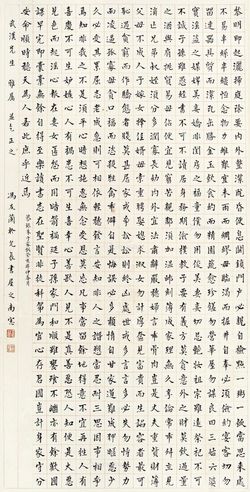 黎明即起灑掃庭除要內外整潔既昏便息關鎖門戶必親自檢點一粥一飯當思來處
不易半絲半縷恆念物力維艱宜未雨而綢繆毋臨渴而掘井自奉必須儉約宴客切勿
留連器具質而潔瓦缶勝金玉飲食約而精園蔬愈珍饈勿營華屋勿謀良田三姑六婆
實淫盜之媒婢美妾嬌非閨房之福童僕勿用俊美妻妾切忌豔妝祖宗雖遠祭祀不可
不誠子孫雖愚經書不可不讀居身務期質樸教子要有義方勿貪意外之財勿飲過量
之酒與肩挑貿易毋佔便宜見窮苦親鄰須加溫恤刻薄成家理無久享倫常乖舛立見
消亡兄弟叔姪須分多潤寡長幼內外宜法肅辭嚴聽婦言乖骨肉豈是丈夫重資財薄
父母不成人子嫁女擇佳婿毋索重聘娶媳求淑女勿計厚奩見富貴而生諂容者最可
恥遇貧窮而作驕態者賤莫甚居家戒爭訟訟則終凶處世戒多言言多必失勿恃勢力
而凌逼孤寡毋貪口腹而恣殺牲禽乖僻自是悔誤必多頹惰自甘家道難成狎昵惡少
久必受其累屈志老成急則可相依輕聽發言安知非人之譖訴當忍耐三思因事相爭
焉知非我之不是須平心暗想施惠無念受恩莫忘凡事當留餘地得意不宜再往人有
喜慶不可生妒嫉心人有禍患不可生喜幸心善欲人見不是真善惡恐人知便是大惡
見色而起淫心報在妻女匿怨而用暗箭禍延子孫家門和順雖饔飧不繼亦有餘歡國
課早完即囊橐無餘自得至樂讀書志在聖賢非徒科第為官心存君國豈計身家守分
安命順時聽天為人若此庶乎近焉
武漢先生 雅屬 並乞正之